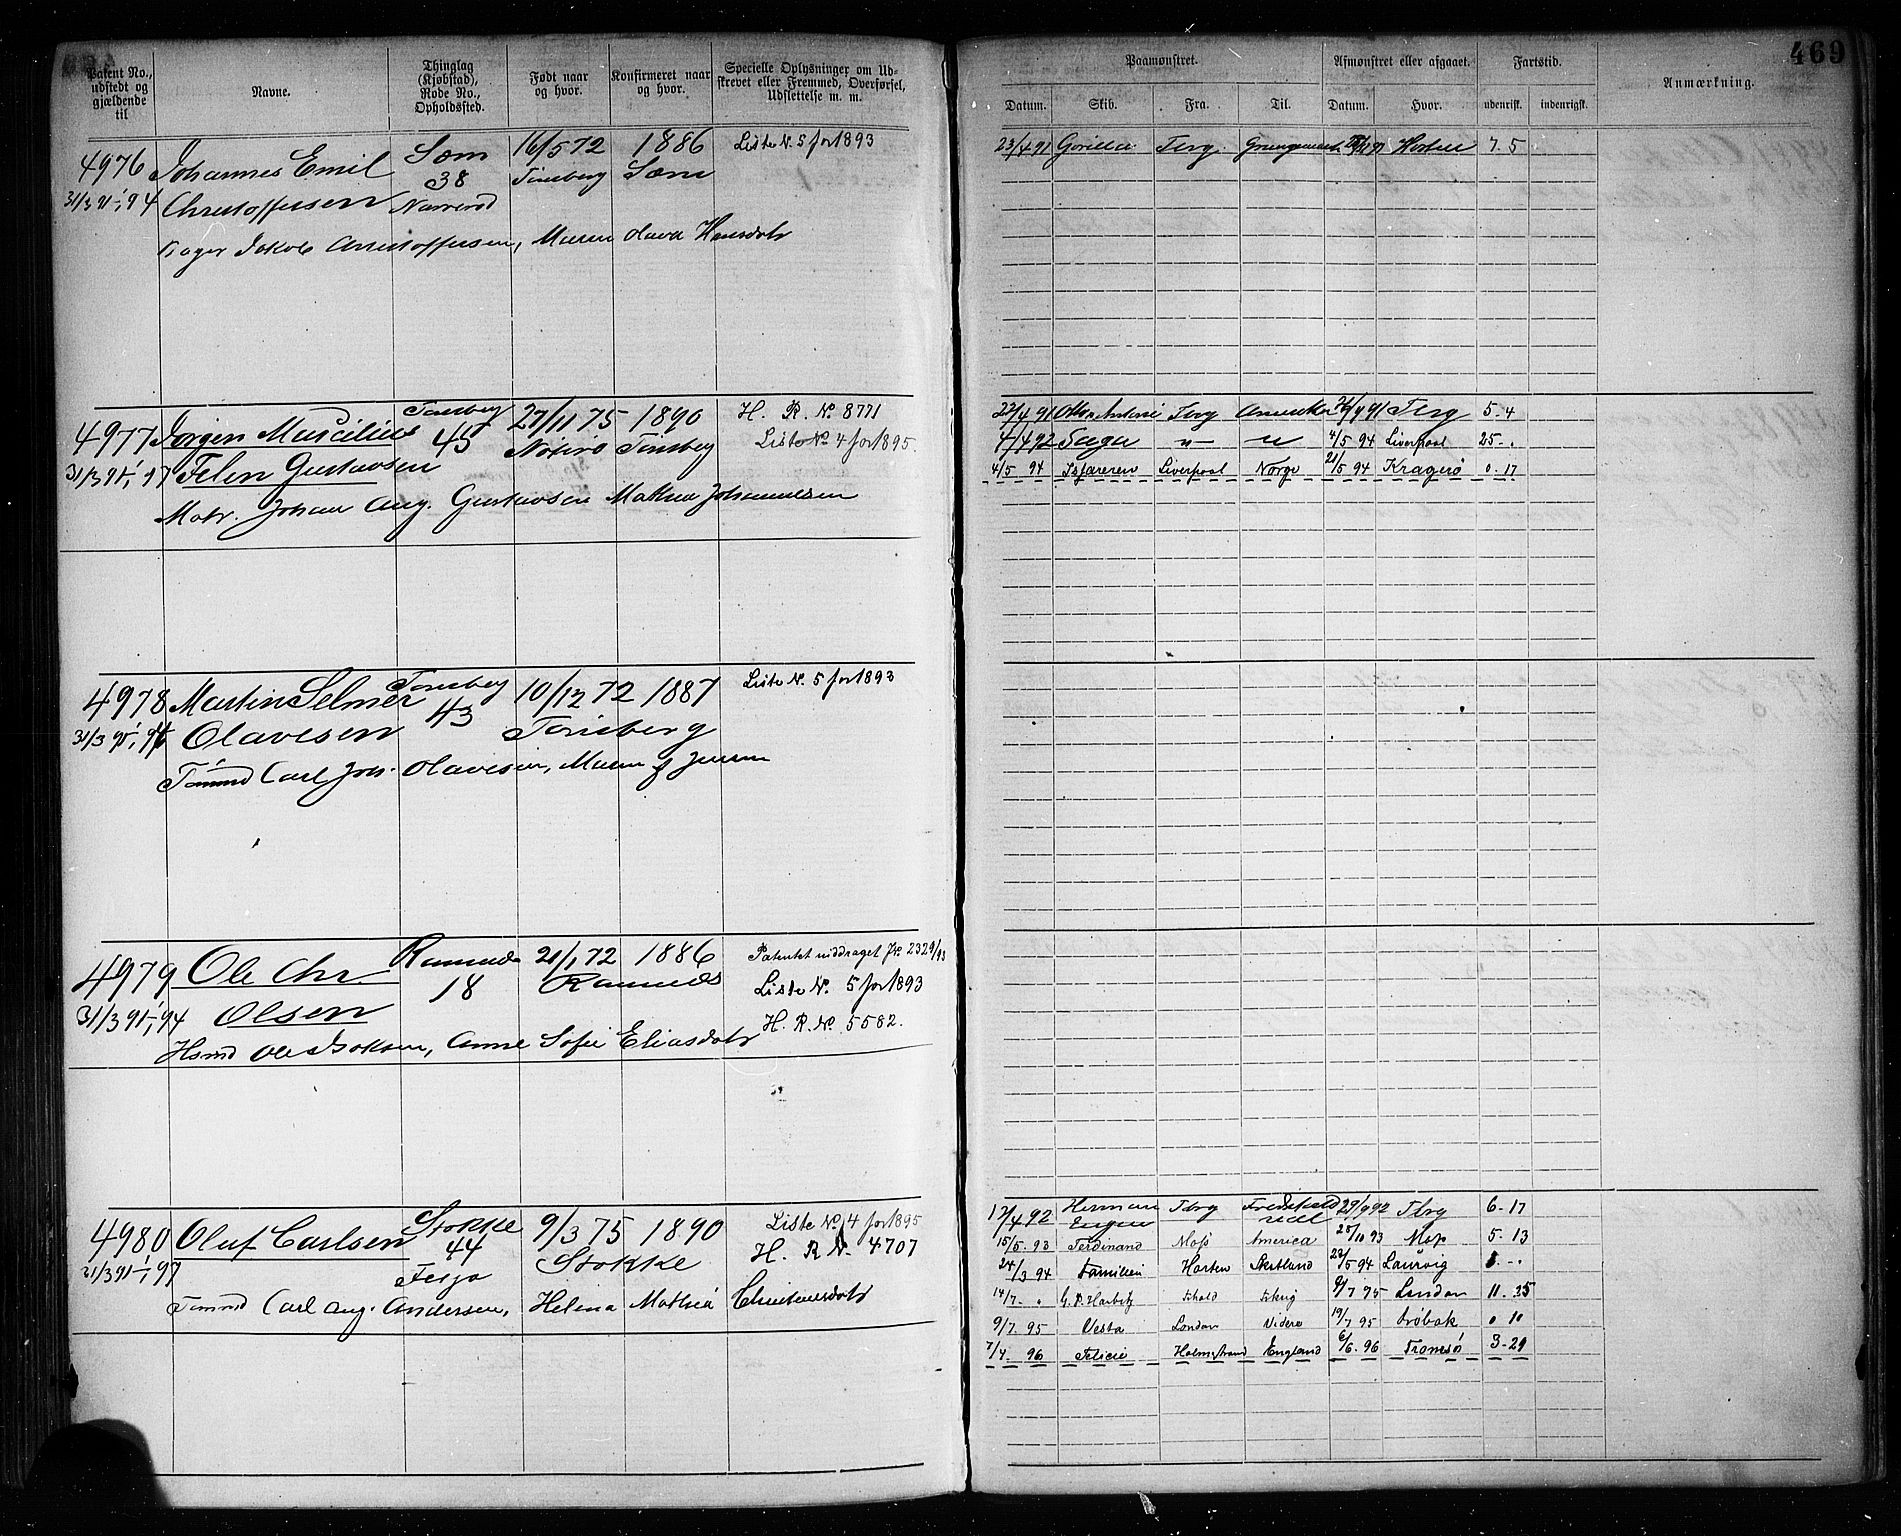 Patent No., udstedt og gjældende til
Navne.
Thinglag (Kjøbstad), Rode No., Opholdssted.
Født naar og hvor.
Konfirmeret naar og hvor.
Specielle Oplysninger om Udskrevet eller Fremmed, Overførsel, Udslettelse m. m.
4976 Johannes Emil Sæm 16/5 72 1886 Liste No. 5 for 1893
38 Tönsberg Sæm
31/3 91–, 94 Christoffersen
Jakob Christoffersen, Maren Olava Hansdatr
4977 Jørgen Marcilius Tönsberg 27/11 75 1890 H. R. No. 8771
45 Nøterø Tönsberg Liste No. 4 for 1895.
31/3 91–, 97 Felen Gustavsen
Matr. Johan Aug. Gustavsen Mathea Johannesen
4978 Martin Selmer Tönsberg 10/12 72 1887 Liste No. 5 for 1893
43
Olavesen Tönsberg
Tömmd Carl Joh. Olavesen, Maren J Jensen
4979 Ole Chr. Ramnæs 21/1 72 1886 Patentet inddraget J.No. 2329/93
18 Ramnæs Liste No. 5 for 1893
31/3 91–, 94 Olsen H. R. No. 5582.
Husmd Ole Isaksen, Anne Sofie Eliasdatr
4980 Oluf Carlsen Stokke 9/3 75 1890 Liste No. 4 for 1895
44 Stokke H. R. No. 4707
31/3 91–, 97
Tömmd Carl Aug. Andersen, Helena Mathea Christensdatr
469
Paamønstret.
Afmønstret eller afgaaet.
Fartstid.
Anmærkning.
Datum. Skib. Fra. Til. Datum. Hvor. udenrigsk. indenrigsk.
23/4 91 Gorilla Tbrg. Horten 7. 5
22/4 91 Otto & Antonie Tbrg Amerika 26/9 91 Tbrg 5. 4
4/4 92 Saga –"– –"– 4/5 94 Liverpool 25 - .
4/5 94 Isfareren Liverpool Norge 21/5 94 Kragerø 0. 17
12/4 92 Herman Eugen Tbrg 29/9 92 Tbrg 6. 17
15/5. 93 Ferdinand Moss America 28/10 93 Moss 5. 13
24/3 94 Familien Horten Skotland 23/5 94 Laurvig
14/7. " 9/7 95 London 11. 25
9/7. 95 Vesta London Viderø 19/7 95 Drøbak 0 10
7/4. 96 Felicie Holmestrand England 6/6. 96 Tromsø 3 - 29